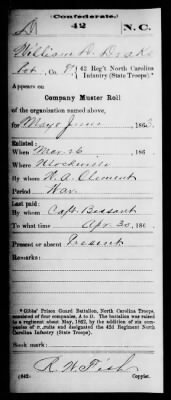 (Confederate.)
D 42 N.C.
William D. Drake
Co. F, 42 Reg't North Carolina
Infantry (State Troops).*
Appears on
Company Muster Roll
of the organization named above,
for May & June, 1863.
Enlisted:
When Mar. 26, 186
Where Mocksville
By whom W. A. Clement
Period War.
Last paid:
By whom Capt. Bessent
To what time Apr. 30, 186
Present or absent Present
Remarks:
*Gibbs' Prison Guard Battalion, North Carolina Troops,
consisted of four companies, A to D. The battalion was raised
to a regiment about May, 1862, by the addition of six com-
panies of recruits and designated the 42d Regiment North
Carolina Infantry (State Troops).
Book mark:
R. W. Fish
(642) Copyist.